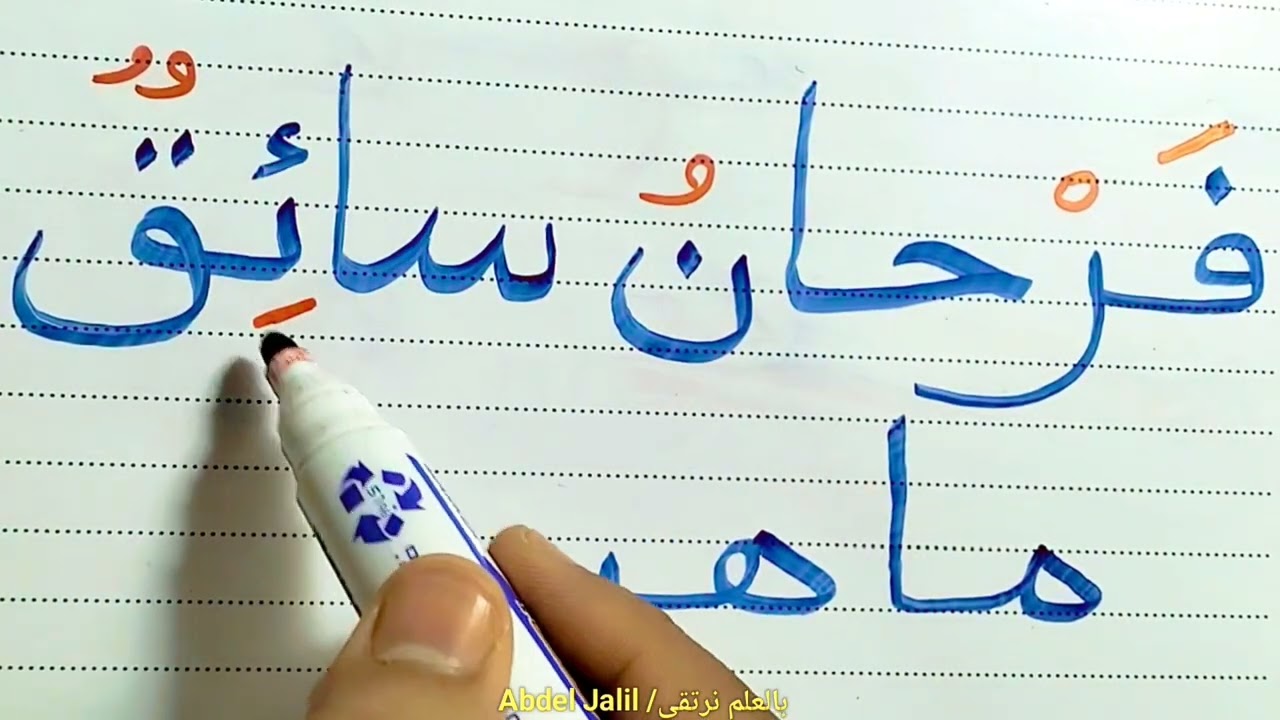 فَرْحانُ سائِقٌ
Abdel Jalil /بالعلم نرتقى